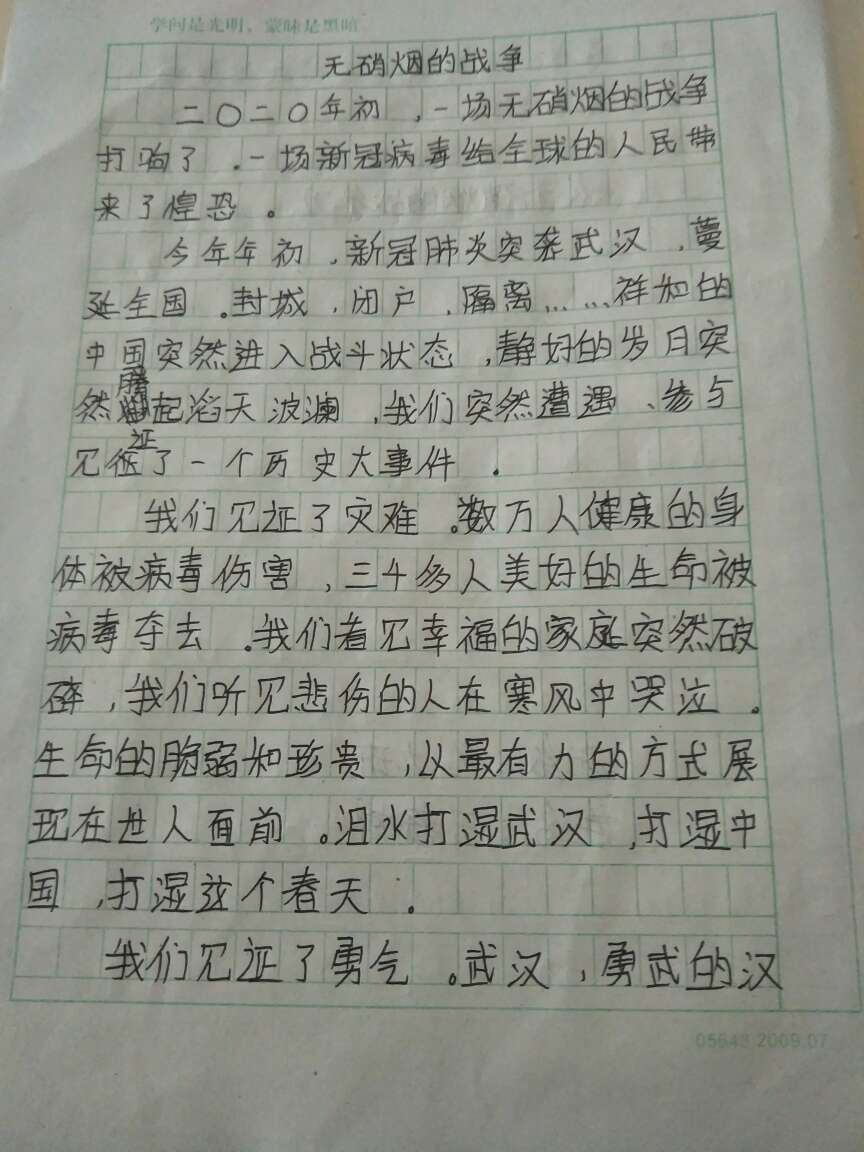 学问是光明，蒙昧是黑暗
无硝烟的战争
二〇二〇年初，一场无硝烟的战争
打响了．一场新冠病毒给全球的人民带
来了惶恐。
今年年初，新冠肺炎突袭武汉，蔓
延全国．封城，闭户，隔离……祥和的
中国突然进入战斗状态，静好的岁月突
然腾起滔天波澜，我们突然遭遇、参与
见证了一个历史大事件．
我们见证了灾难．数万人健康的身
体被病毒伤害，三千多人美好的生命被
病毒夺去．我们看见幸福的家庭突然破
碎，我们听见悲伤的人在寒风中哭泣．
生命的脆弱和珍贵，以最有力的方式展
现在世人面前．泪水打湿武汉，打湿中
国，打湿这个春天．
我们见证了勇气．武汉，勇武的汉
05643 2009.07